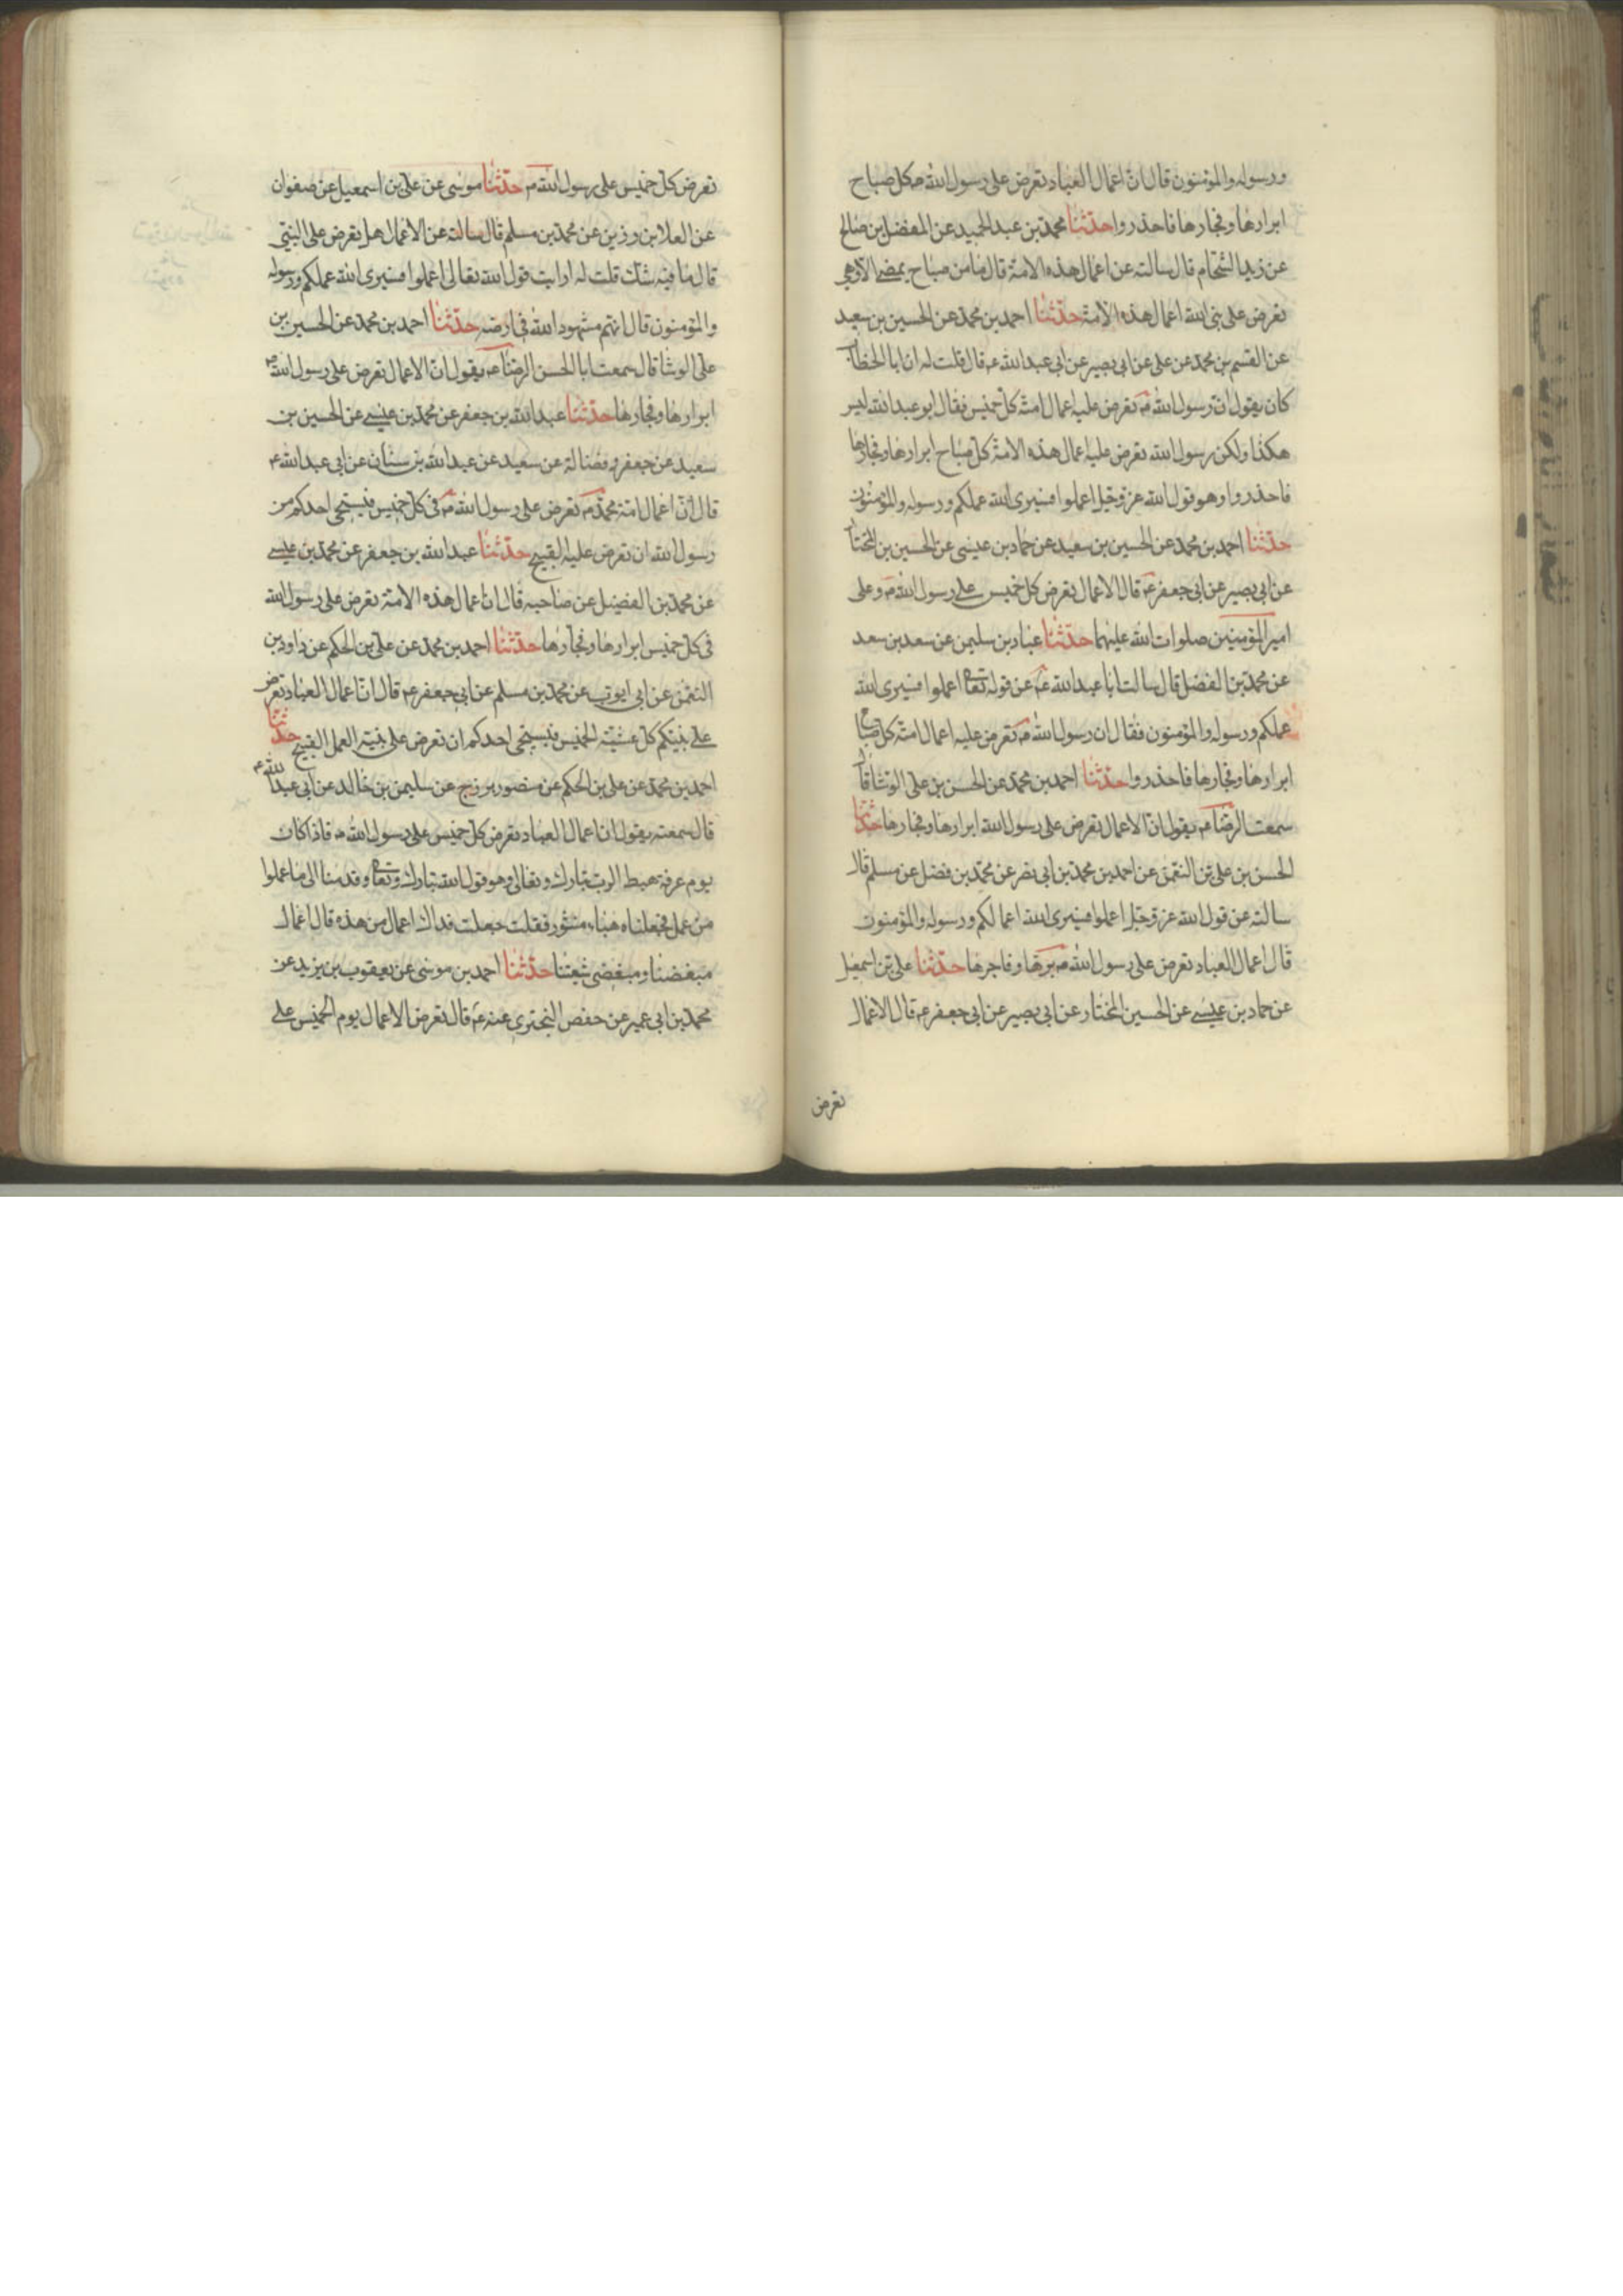 ورسوله والمؤمنون قال ان اعمال العباد تعرض على رسول الله ص كل صباح
ابرارها وفجارها فاحذروا حدثنا محمد بن عبد الحميد عن المفضل بن صالح
عن زيد الشحام قال سالته عن اعمال هذه الامة قال ما من صباح يمضى الا وهى
تعرض على نبى الله اعمال هذه الامة حدثنا احمد بن محمد عن الحسين بن سعيد
عن القسم بن محمد عن على عن ابى بصير عن ابى عبد الله ع قال قلت له ان ابا الخطاب
كان يقول ان رسول الله ص تعرض عليه اعمال امته كل خميس فقال ابو عبد الله ليس
هكذا ولكن رسول الله تعرض عليه اعمال هذه الامة كل صباح ابرارها وفجارها
فاحذروا وهو قول الله عز وجل اعملوا فسيرى الله عملكم ورسوله والمؤمنون
حدثنا احمد بن محمد عن الحسين بن سعيد عن حماد بن عيسى عن الحسين بن المختار
عن ابى بصير عن ابى جعفر ع قال الاعمال تعرض كل خميس على رسول الله ص وعلى
امير المؤمنين صلوات الله عليهما حدثنا عباد بن سليمن عن سعد بن سعد
عن محمد بن الفضل قال سالت ابا عبد الله ع عن قوله تعا اعملوا فسيرى الله
عملكم ورسوله والمؤمنون فقال ان رسول الله ص تعرض عليه اعمال امته كل صباح
ابرارها وفجارها فاحذروا حدثنا احمد بن محمد عن الحسن بن على الوشا قال
سمعت الرضا ع يقول ان الاعمال تعرض على رسول الله ابرارها وفجارها حدثنا
الحسن بن على بن النعمن عن احمد بن محمد بن ابى نصر عن محمد بن فضل عن مسلم قال
سالته عن قول الله عز وجل اعملوا فسيرى الله اعمالكم ورسوله والمؤمنون
قال اعمال العباد تعرض على رسول الله ص برها وفاجرها حدثنا على بن اسمعيل
عن حماد بن عيسى عن الحسين المختار عن ابى بصير عن ابى جعفر ع قال الاعمال
تعرض
تعرض كل خميس على رسول الله ص حدثنا موسى عن على بن اسمعيل عن صفوان
عن العلا بن رزين عن محمد بن مسلم قال سالته عن الاعمال هل تعرض على النبى
قال ما فيه شك قلت له ارايت قول الله تعالى اعملوا فسيرى الله عملكم ورسوله
والمؤمنون قال انهم شهود الله فى ارضه حدثنا احمد بن محمد عن الحسين بن
على الوشا قال سمعت ابا الحسن الرضا ع يقول ان الاعمال تعرض على رسول الله ص
ابرارها وفجارها حدثنا عبد الله بن جعفر عن محمد بن عيسى عن الحسين بن
سعيد عن جعفر و فضالة عن سعيد عن عبد الله بن سنان عن ابى عبد الله ع
قال ان اعمال امة محمد ص تعرض على رسول الله ص فى كل خميس فليستحى احدكم من
رسول الله ان تعرض عليه القبيح حدثنا عبد الله بن جعفر عن محمد بن عيسى
عن محمد بن الفضيل عن صاحبه قال ان اعمال هذه الامة تعرض على رسول الله
فى كل خميس ابرارها وفجارها حدثنا احمد بن محمد عن على بن الحكم عن داود بن
النعمن عن ابى ايوب عن محمد بن مسلم عن ابى جعفر ع قال ان اعمال العباد تعرض
على نبيكم كل عشية الخميس فليستحى احدكم ان تعرض على نبيه العمل القبيح حدثنا
احمد بن محمد عن على بن الحكم عن منصور بزرج عن سليمن بن خالد عن ابى عبد الله ع
قال سمعته يقول ان اعمال العباد تعرض كل خميس على رسول الله ص فاذا كان
يوم عرفة هبط الرب تبارك وتعالى وهو قول الله تبارك وتعا وقدمنا الى ما عملوا
من عمل فجعلناه هباء منثور فقلت جعلت فداك اعمال من هذه قال اعمال
مبغضنا ومبغضى شيعتنا حدثنا احمد بن موسى عن يعقوب بن يزيد عن
محمد بن ابى عمير عن حفص البخترى عنه ع قال تعرض الاعمال يوم الخميس على